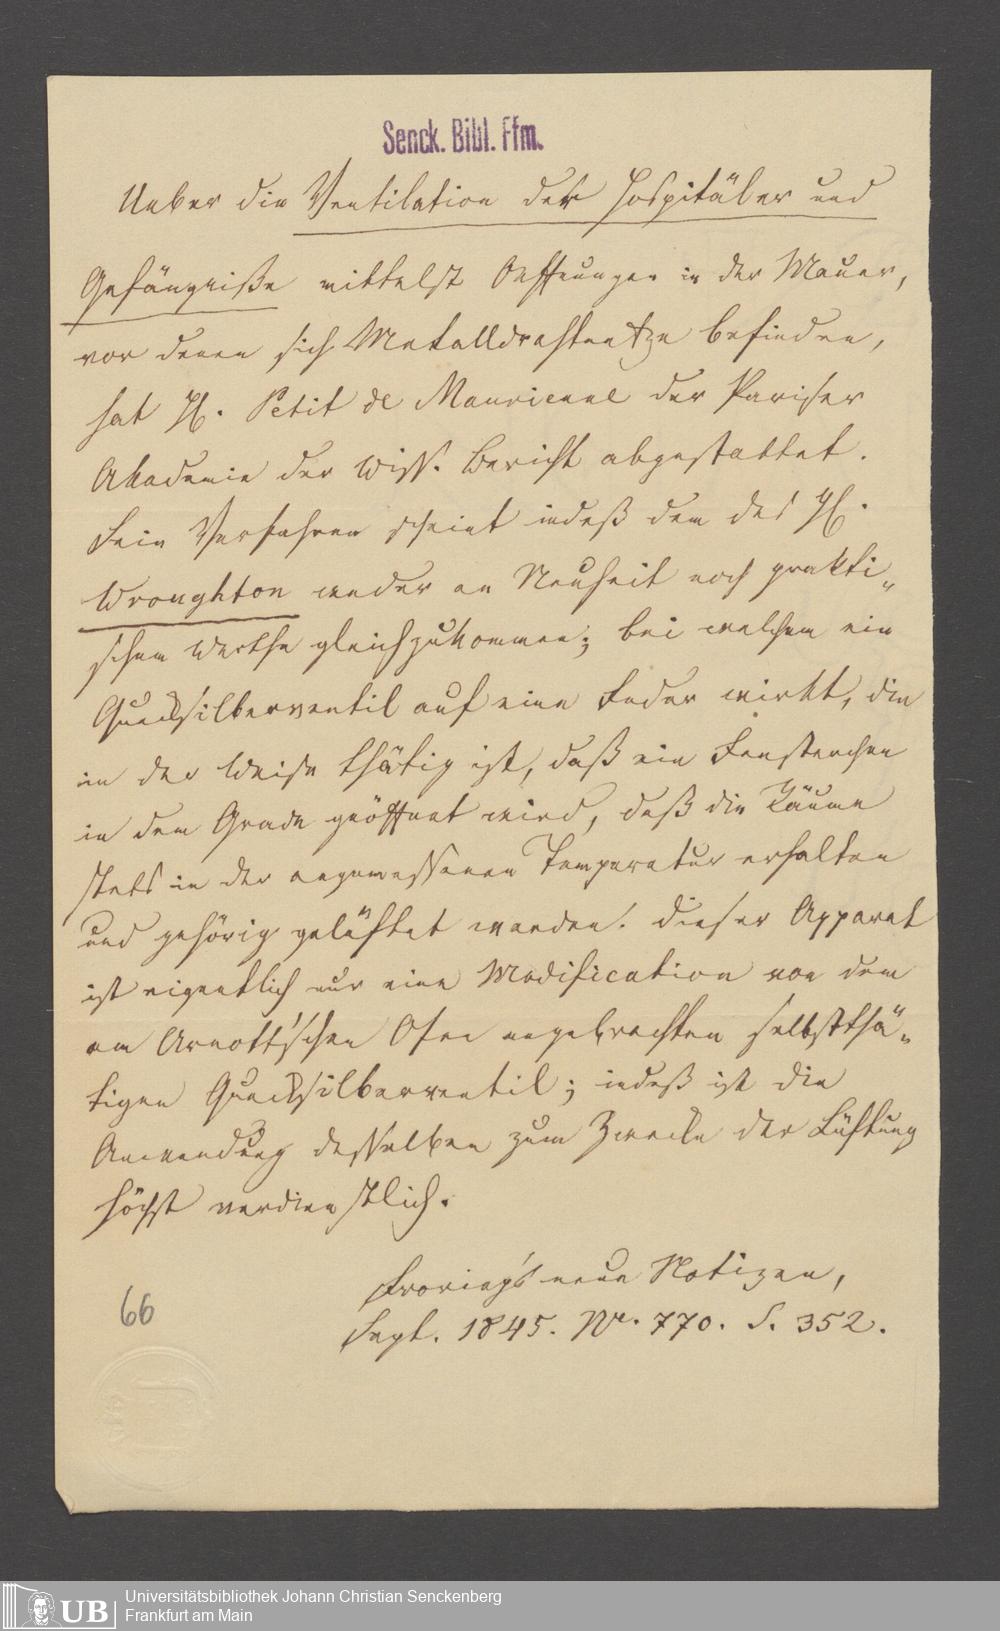 Senck. Bibl. Ffm.
Ueber die Ventilation der Hospitäler und
Gefängniße mittelst Oeffnungen in der Mauer,
vor denen sich Metalldrahtnetze befinden,
hat H. Petit de Maurienne der Pariser
Akademie der Wiss. Bericht abgestattet.
Sein Verfahren scheint indeß dem des H.
Wroughton weder an Neuheit noch prakti„
schem Werthe gleichzukommen; bei welchem ein
Quecksilberventil auf eine Feder wirkt, die
in der Weise thätig ist, daß ein Fensterchen
in dem Grade geöffnet wird, daß die Räume
stets in der angemessenen Temperatur erhalten
und gehörig gelüftet werden. Dieser Apparat
ist eigentlich nur eine Modification von dem
am Arnott'schen Ofen angebrachten selbstthä„
tigen Quecksilberventil; indeß ist die
Anwendung desselben zum Zwecke der Lüftung
höchst verdienstlich.
Froriep's neue Notizen,
Sept. 1845. Nr. 770. S. 352.
66
UB
Universitätsbibliothek Johann Christian Senckenberg
Frankfurt am Main